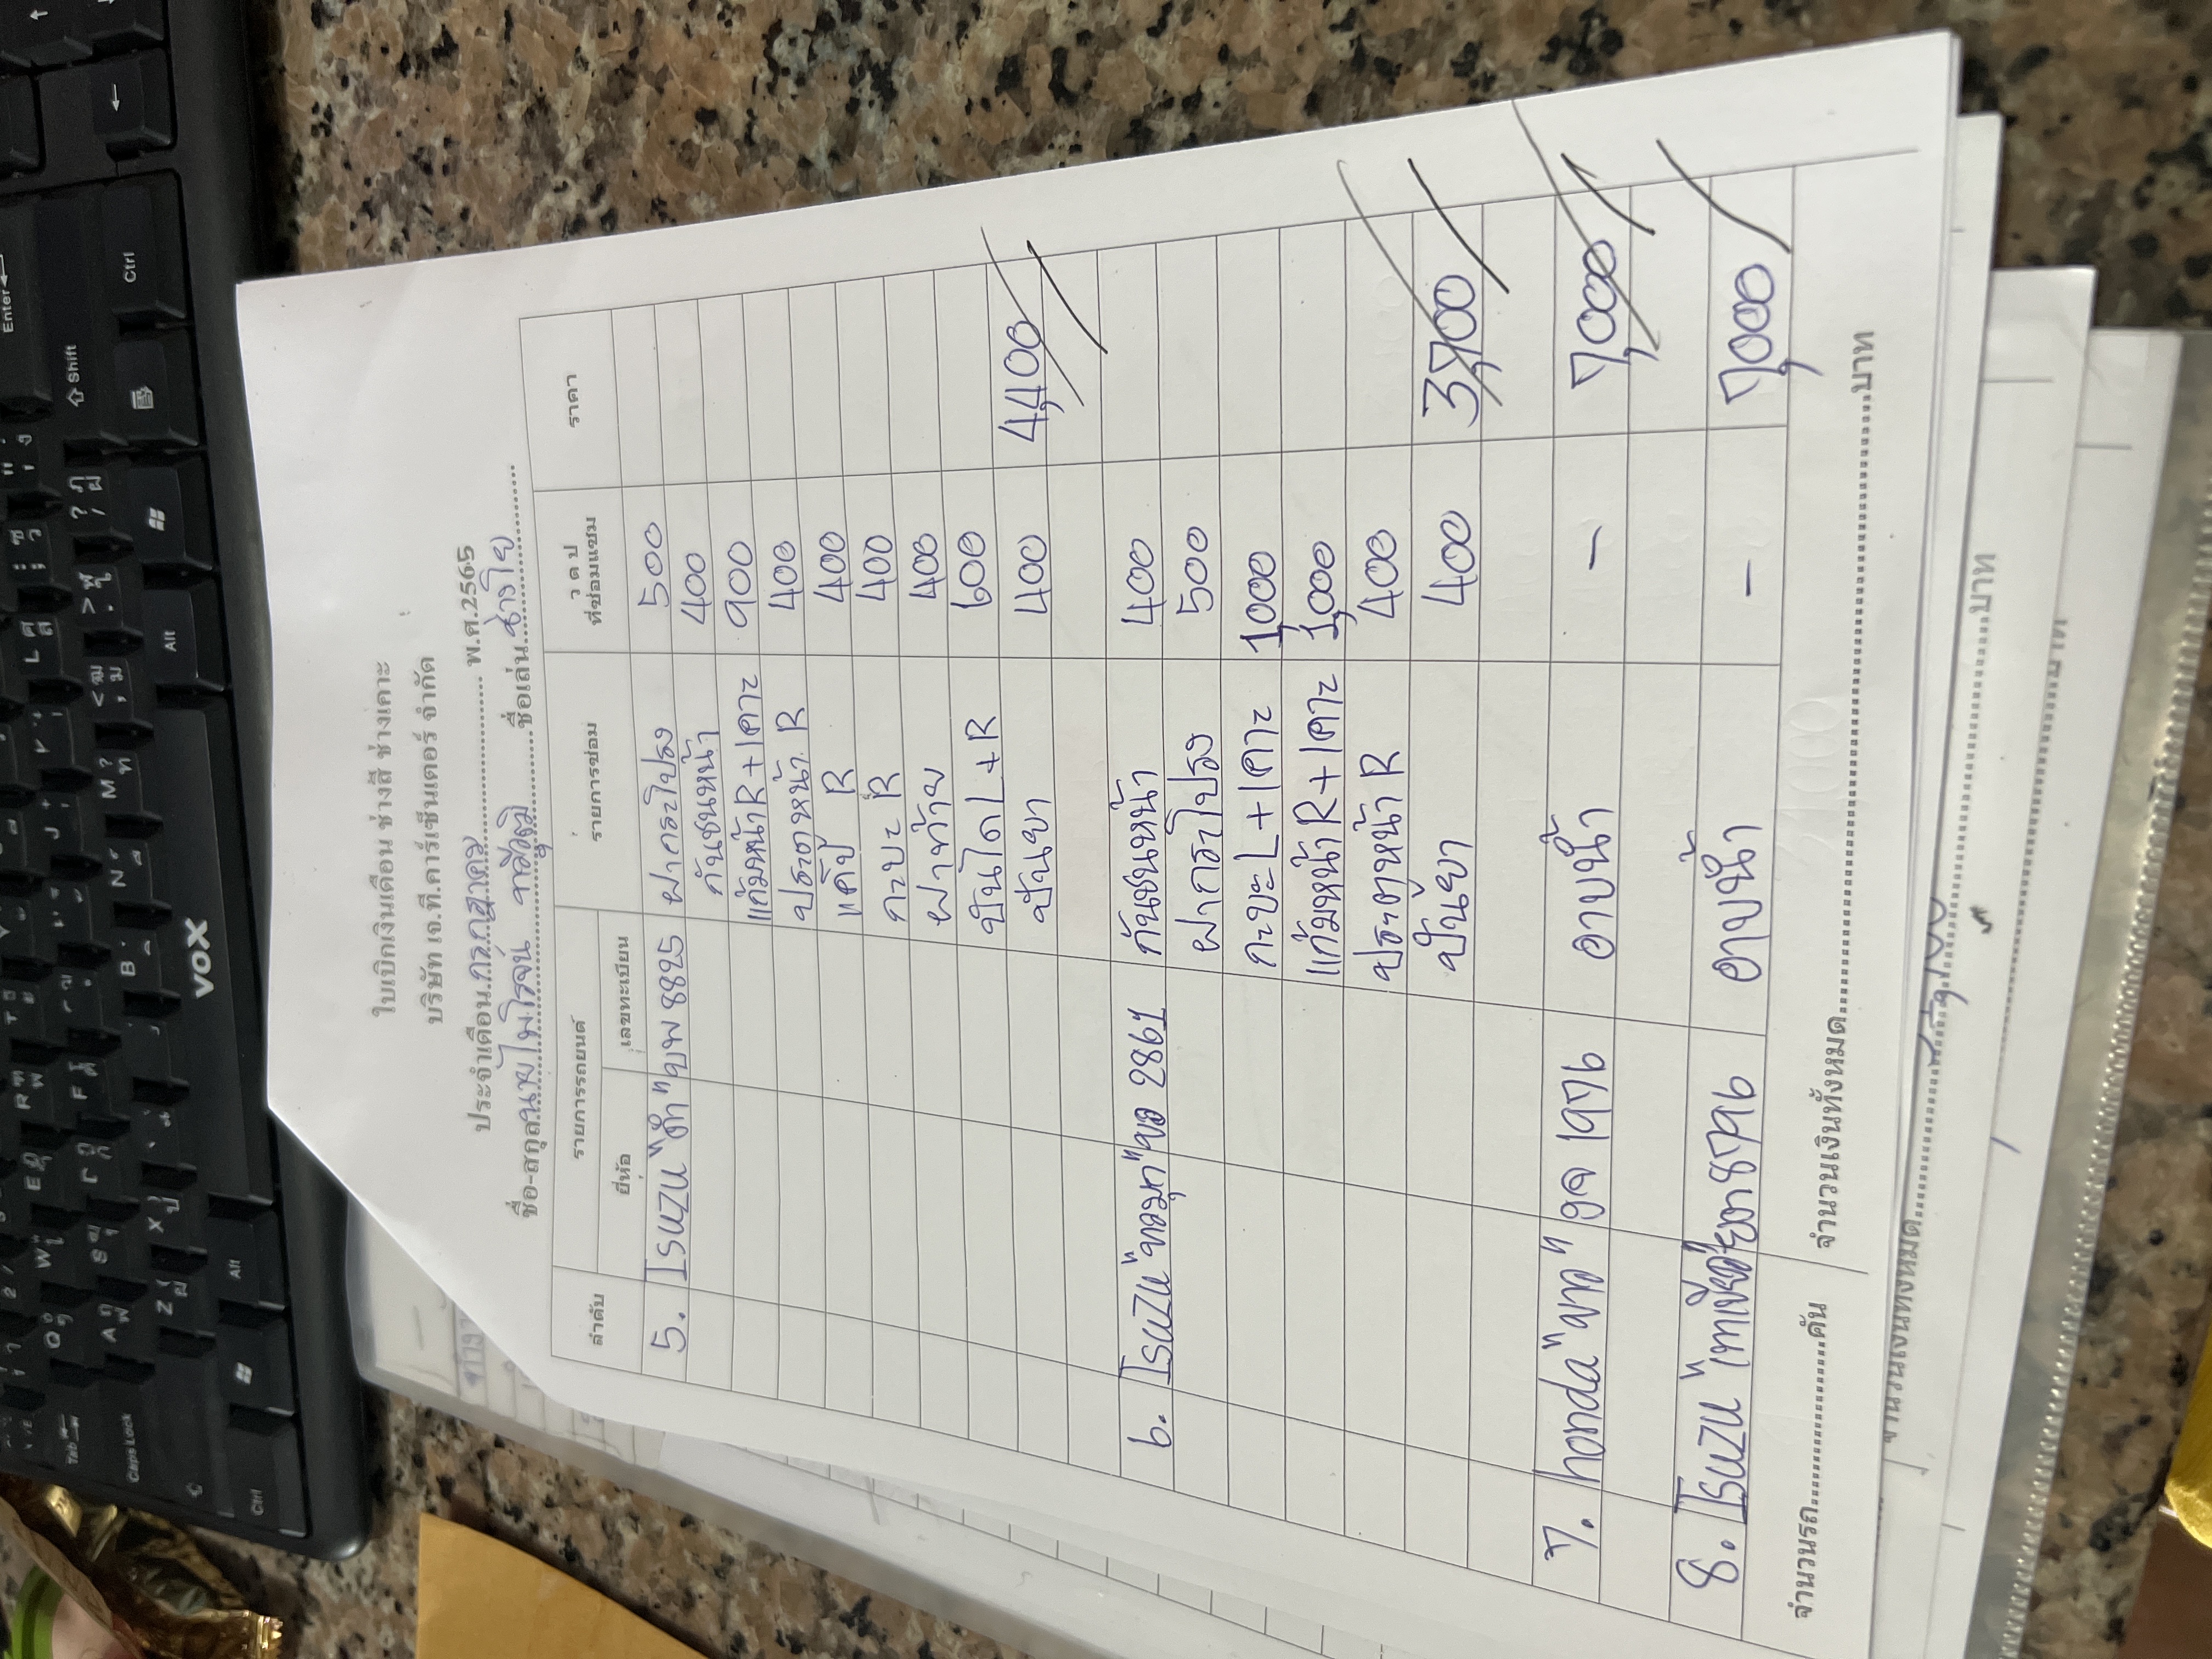 ใบเบิกเงินเดือน ช่างสี ช่างเคาะ
บริษัท เจ.ที.คาร์เซ็นเตอร์ จำกัด
ประจำเดือน.กรกฎาคม.................... พ.ศ.2565
ชื่อ-สกุล.นายไพโรจน์ ทวีวุฒิ...........ชื่อเล่น.ช่างโย..........
ลำดับ รายการรถยนต์ รายการซ่อม ว ด ป ที่ซ่อมแซม ราคา
ยี่ห้อ เลขทะเบียน
5. ISUZU "ดำ" ขพ 8825 ฝากระโปรง 500
กันชนหน้า 400
แก้มหน้า R + เคาะ 900
ประตูหน้า R 400
แค๊ป R 400
กะบะ R 400
ฝาท้าย 400
บันได L+R 600
ปั่นยา 400 4,400
6. ISUZU "ขาวมุก" ขอ 2861 กันชนหน้า 400
ฝากระโปรง 500
กะบะ L + เคาะ 1,000
แก้มหน้า R + เคาะ 1,000
ประตูหน้า R 400
ปั่นยา 400 3,700
7. honda "ขาว" 1976 อาบน้ำ - 7,000
8. ISUZU 8796 อาบน้ำ - 7,000
จำนวนรถ....................คัน จำนวนเงินทั้งหมด....................บาท
จำนวนเงินทั้งหมด....................บาท
บาท
VOX
Enter
Shift
Ctrl
Alt
Alt
Ctrl
Caps Lock
Tab